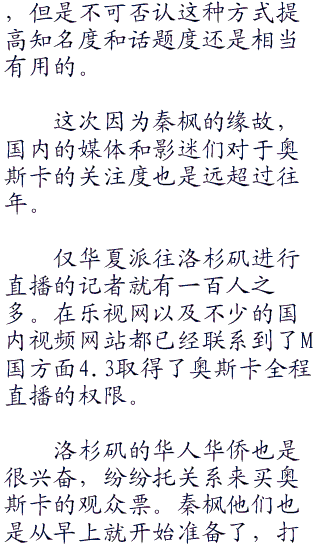 ，但是不可否认这种方式提
高知名度和话题度还是相当
有用的。
这次因为秦枫的缘故，
国内的媒体和影迷们对于奥
斯卡的关注度也是远超过往
年。
仅华夏派往洛杉矶进行
直播的记者就有一百人之
多。在乐视网以及不少的国
内视频网站都已经联系到了M
国方面4.3取得了奥斯卡全程
直播的权限。
洛杉矶的华人华侨也是
很兴奋，纷纷托关系来买奥
斯卡的观众票。秦枫他们也
是从早上就开始准备了，打